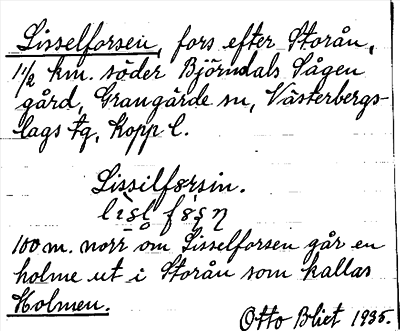 Lisselforsen, fors efter Storån,
1 1/2 km. söder Björndals Sågen
gård, Grangärde sn, Västerbergs-
lags tg, Kopp l.
Lissilførsin.
100 m. norr om Lisselforsen går en
holme ut i Storån som kallas
Holmen.
Otto Blixt 1935.